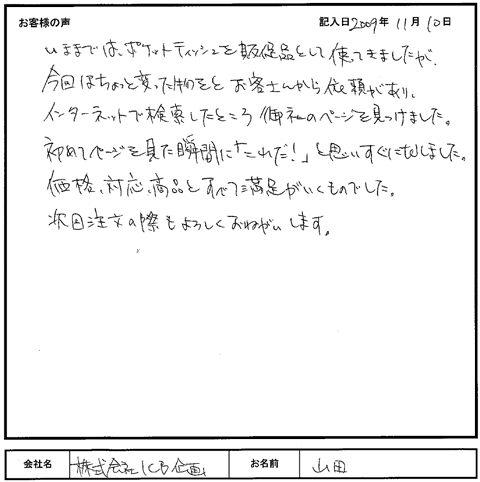 お客様の声 記入日 2009年 11月 10日
いままでは、ポケットティッシュを販促品として使てきましたが、
今回はちょっと変った物をと お客さんから依頼があり、
インターネットで検索したところ 御社のページを見つけました。
初めてページを見た瞬間に「これだ!」と思いすぐにTELしました。
価格、対応、商品とすべて満足がいくものでした。
次回注文の際もよろしくおねがいします。
会社名 株式会社ICB企画 お名前 山田